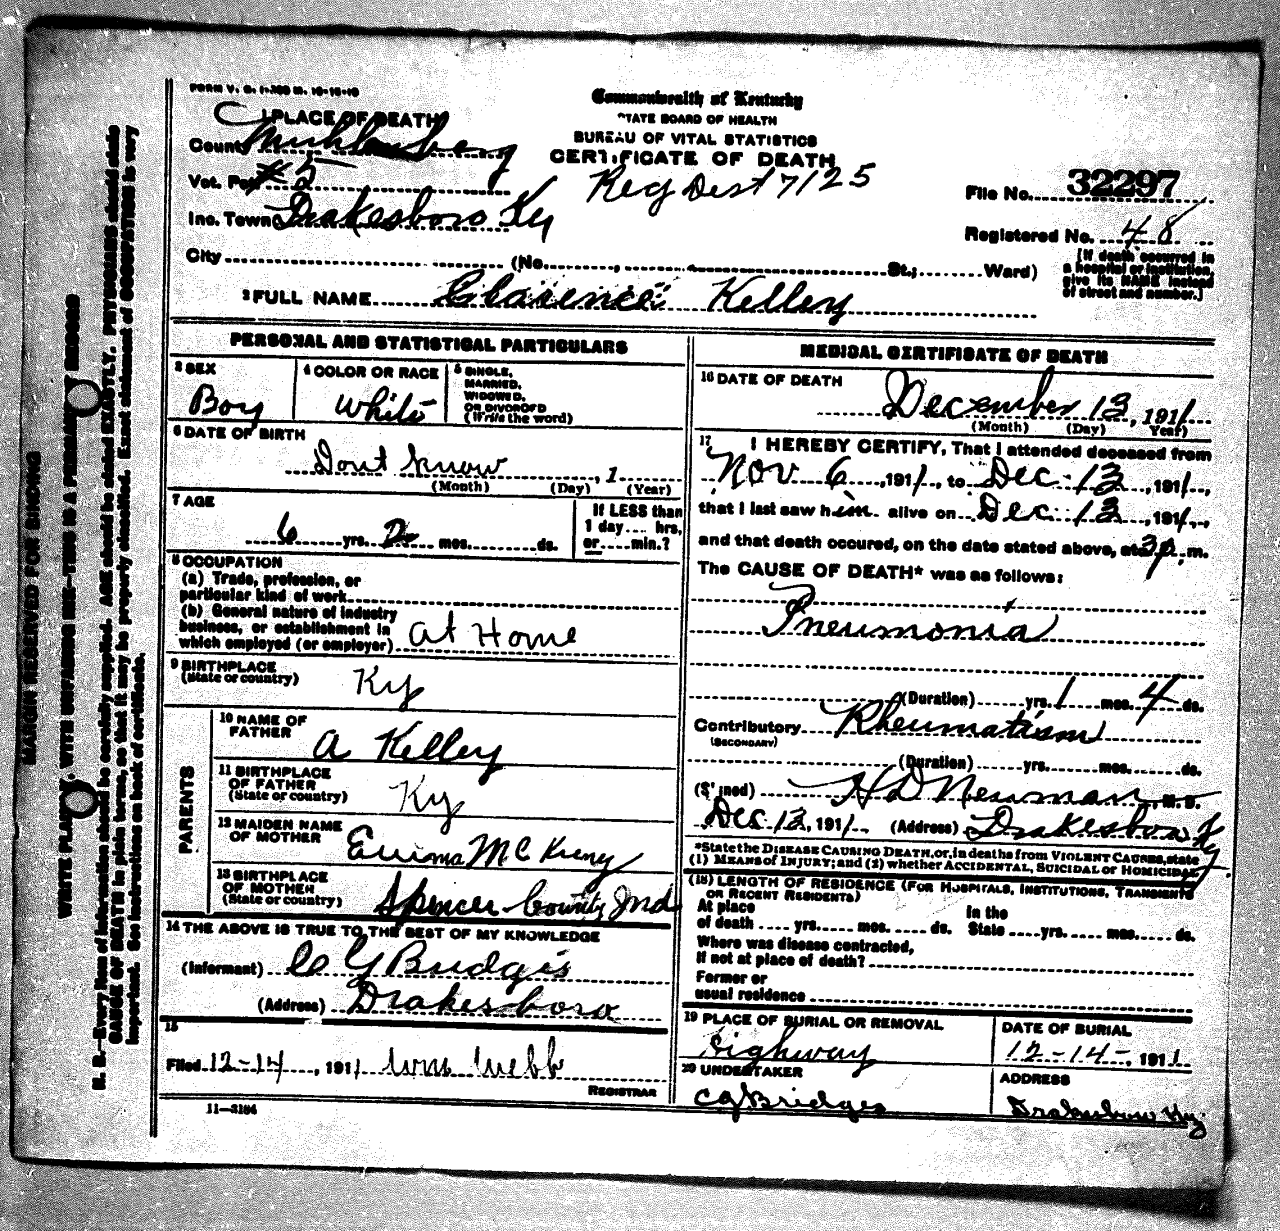 FORM V. S. 1-300 M. 10-18-10
Commonwealth of Kentucky
STATE BOARD OF HEALTH
BUREAU OF VITAL STATISTICS
CERTIFICATE OF DEATH
Reg Dist 7125
1 PLACE OF DEATH
County Muhlenberg
Vot. Pct # 5
Inc. Town Drakesboro Ky
City (No. , St.; Ward)
File No. 32297
Registered No. 48
[If death occurred in a hospital or institution, give its NAME instead of street and number.]
2 FULL NAME Clarence Kelley
PERSONAL AND STATISTICAL PARTICULARS
3 SEX
Boy
4 COLOR OR RACE
White
5 SINGLE, MARRIED, WIDOWED, OR DIVORCED (Write the word)
6 DATE OF BIRTH
Dont know , 1
(Month) (Day) (Year)
7 AGE
6 yrs. 2 mos. ds.
If LESS than 1 day hrs. or min.?
8 OCCUPATION
(a) Trade, profession, or
particular kind of work
(b) General nature of industry
business, or establishment in
which employed (or employer) at Home
9 BIRTHPLACE
(State or country) Ky
PARENTS
10 NAME OF FATHER A Kelley
11 BIRTHPLACE OF FATHER (State or country) Ky
12 MAIDEN NAME OF MOTHER Emma McKinny
13 BIRTHPLACE OF MOTHER (State or country) Spencer County Ind
14 THE ABOVE IS TRUE TO THE BEST OF MY KNOWLEDGE
(Informant) C G Bridges
(Address) Drakesboro
15
Filed 12-14, 1911 Wm Webb
REGISTRAR
11-3184
MEDICAL CERTIFICATE OF DEATH
16 DATE OF DEATH
December 13, 1911
(Month) (Day) (Year)
17 I HEREBY CERTIFY, That I attended deceased from
Nov 6, 1911, to Dec. 13, 1911,
that I last saw him alive on Dec. 13, 1911,
and that death occured, on the date stated above, at 3 p. m.
The CAUSE OF DEATH* was as follows:
Pneumonia
(Duration) yrs. 1 mos. 4 ds.
Contributory Rheumatism
(SECONDARY)
(Duration) yrs. mos. ds.
(Signed) H D Newman, M. D.
Dec 13, 1911 (Address) Drakesboro Ky
*State the DISEASE CAUSING DEATH, or, in deaths from VIOLENT CAUSES, state
(1) MEANS of INJURY; and (2) whether ACCIDENTAL, SUICIDAL or HOMICIDAL.
(18) LENGTH OF RESIDENCE (FOR HOSPITALS, INSTITUTIONS, TRANSIENTS
OR RECENT RESIDENTS)
At place of death yrs. mos. ds. In the State yrs. mos. ds.
Where was disease contracted,
If not at place of death?
Former or
usual residence
19 PLACE OF BURIAL OR REMOVAL
Highway
DATE OF BURIAL
12-14-, 1911
20 UNDERTAKER
CG Bridges
ADDRESS
Drakesboro Ky
MARGIN RESERVED FOR BINDING
WRITE PLAINLY, WITH UNFADING INK—THIS IS A PERMANENT RECORD
N. B.—Every item of information should be carefully supplied. AGE should be stated EXACTLY. PHYSICIANS should state
CAUSE OF DEATH in plain terms, so that it may be properly classified. Exact statement of OCCUPATION is very
important. See instructions on back of certificate.